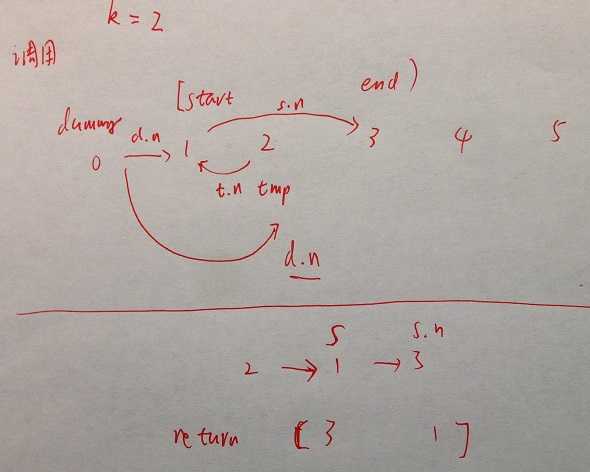 k = 2
调用
[start s.n end )
dummy d.n
0 1 2 3 4 5
t.n tmp
d.n
S s.n
2 → 1 → 3
return [ 3 1 ]